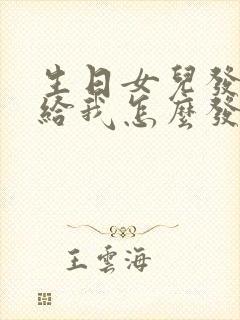 生日女兒發
給我怎麼發
王雲海